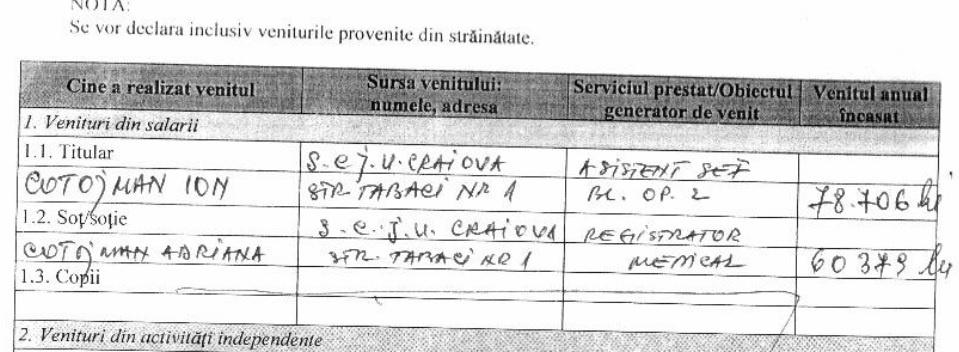 NOTĂ:
Se vor declara inclusiv veniturile provenite din străinătate.
Cine a realizat venitul
Sursa venitului:
numele, adresa
Serviciul prestat/Obiectul
generator de venit
Venitul anual
încasat
1. Venituri din salarii
1.1. Titular
COTOJMAN ION
S.C.J.U. CRAIOVA
STR TABACI NR 1
ASISTENT SEF
BL. OP. 2
78.706 lei
1.2. Soț/soție
COTOJMAN ADRIANA
S.C.J.U. CRAIOVA
STR. TABACI NR 1
REGISTRATOR
MEDICAL
60 379 lei
1.3. Copii
2. Venituri din activități independente